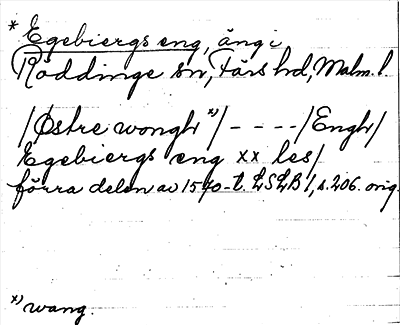 * Egebiergs eng, äng i
Röddinge sn, Färs hd, Malm. l.
/Østre wongh x)/ - - - - /Engh/
Egebiergs eng xx les/
förra delen av 1540-t. LSLB 1, s. 206. orig.
x) wang.